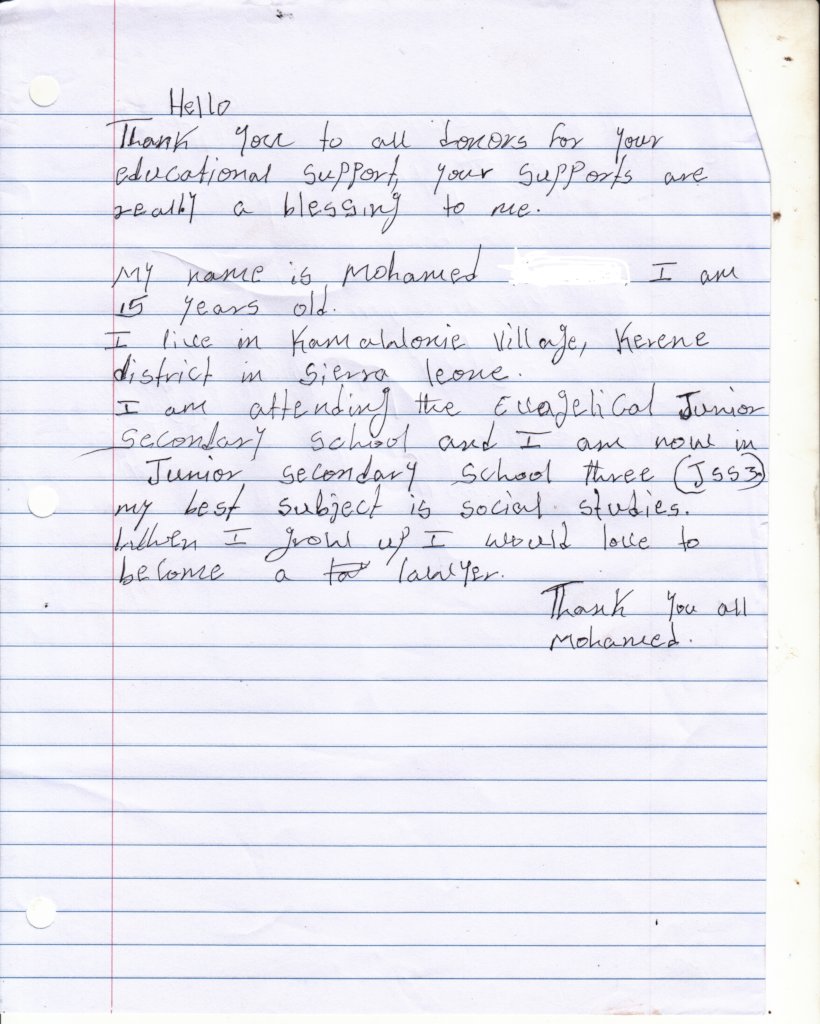 Hello
Thank you to all donors for your
educational support, your supports are
really a blessing to me.
My name is Mohamed I am
15 years old.
I live in Kamalonie village, Kerene
district in Sierra leone.
I am attending the Evagelical Junior
Secondary School and I am now in
Junior secondary school three (JSS3)
my best subject is social studies.
When I grow up I would love to
become a lawyer.
Thank you all
Mohamed.